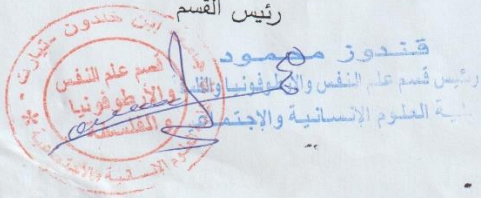 رئيس القسم
قندوز محمود
رئيس قسم علم النفس والأرطوفونيا والفلسفة
كلية العلوم الإنسانية والإجتماعية
ابن خلدون - تيارت -
قسم علم النفس
والأرطوفونيا
و الفلسفة
العلوم الإنسانية والاجتماعية